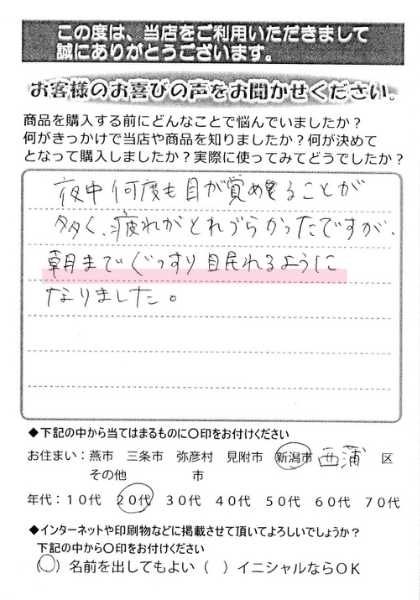 この度は、当店をご利用いただきまして
誠にありがとうございます。
お客様のお喜びの声をお聞かせください。
商品を購入する前にどんなことで悩んでいましたか？
何がきっかけで当店や商品を知りましたか？何が決めて
となって購入しましたか？実際に使ってみてどうでしたか？
夜中何度も目が覚めることが
多く、疲れがとれづらかったですが、
朝までぐっすり眠れるように
なりました。
◆下記の中から当てはまるものに〇印をお付けください
お住まい：燕市 三条市 弥彦村 見附市 新潟市 西蒲 区
その他 市
年代：１０代 ２０代 ３０代 ４０代 ５０代 ６０代 ７０代
◆インターネットや印刷物などに掲載させて頂いてよろしいでしょうか？
下記の中から〇印をお付けください
(〇) 名前を出してもよい ( ) イニシャルならＯＫ